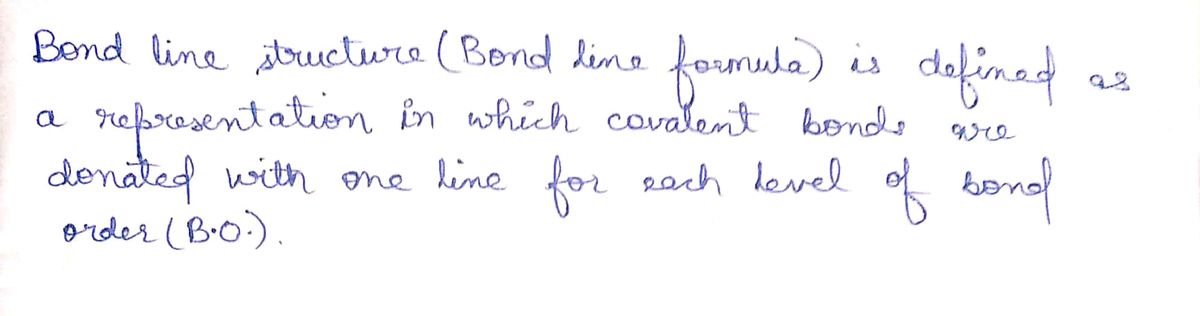 Bond line structure (Bond line formula) is defined as
a representation in which covalent bonds are
donated with one line for each level of bond
order (B.O.).